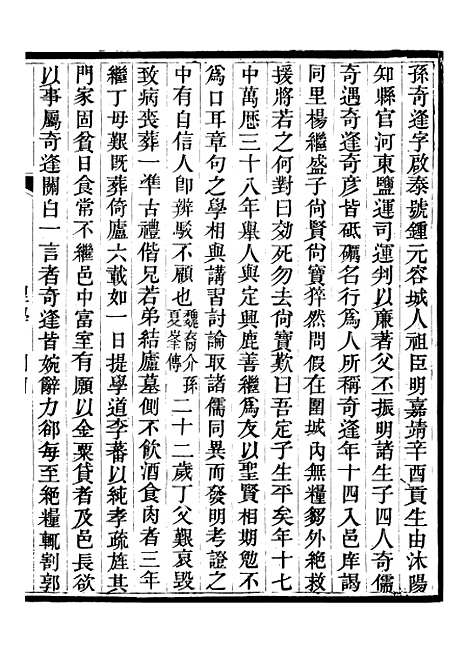 孫奇逢字啟泰號鍾元容城人祖臣明嘉靖辛酉貢生由沭陽
知縣官河東鹽運司運判以廉著父丕振明諸生子四人奇儒
奇遇奇逢奇彦皆砥礪名行爲人所稱奇逢年十四入邑庠謁
同里楊繼盛子尙賢尙寶猝然問假在圍城內無糧芻外絶救
援將若之何對曰效死勿去尙寶歎曰吾定子生平矣年十七
中萬歷三十八年舉人與定興鹿善繼爲友以聖賢相期勉不
爲口耳章句之學相與講習討論取諸儒同異而發明考證之
中有自信人卽辨駁不顧也魏裔介孫夏峯傳二十二歲丁父艱哀毀
致病喪葬一準古禮偕兄若弟結廬墓側不飲酒食肉者三年
繼丁母艱旣葬倚廬六載如一日提學道李蕃以純孝疏旌其
門家固貧日食常不繼邑中富室有願以金粟貸者及邑長欲
以事屬奇逢關白一言者奇逢皆婉辭力卻每至絶糧輒割郭